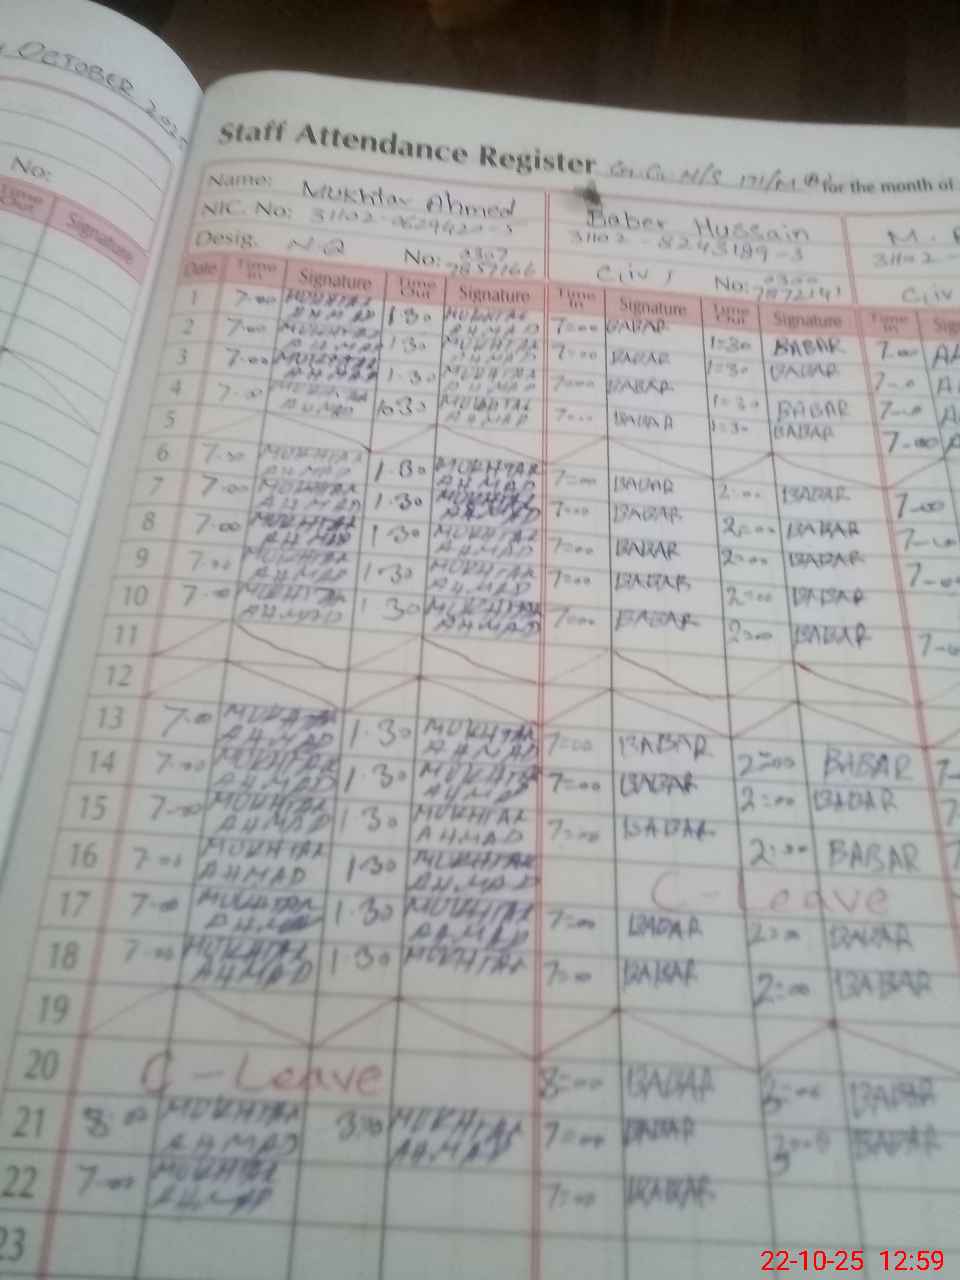 OCTOBER 202
No:
Time Out Signature
Staff Attendance Register for the month of
Name: Mukhtar Ahmed Baber Hussain M.
NIC. No: 31102-0629420-5 31102-8243189-3 31102-
Desig. No: 0307 7857166 Civ No: 0300 7872141 Civ
Date Time In Signature Time Out Signature Time In Signature Time Out Signature Time In
1 7-00 MUKHTAR AHMAD 1-30 MUKHTAR AHMAD 7=00 BABAR 1=30 BABAR 7-00
2 7-00 MUKHTAR AHMAD 1-30 MUKHTAR AHMAD 7=00 BABAR 1=30 BABAR
3 7-00 MUKHTAR AHMAD 1-30 MUKHTAR AHMAD 7=00 BABAR 1=30 BABAR 7-00
4 7-00 MUKHTAR AHMAD MUKHTAR AHMAD 7=00 BABAR 1=30 BABAR 7-00
5
6 MUKHTAR AHMAD 1-30 MUKHTAR AHMAD 7=00 BABAR 2=00 BABAR 7-00
7 7-00 MUKHTAR AHMAD 1-30 MUKHTAR AHMAD 7=00 BABAR 2=00 BABAR
8 7-00 MUKHTAR AHMAD 1-30 MUKHTAR AHMAD 7=00 BABAR 2=00 BABAR 7-00
9 7-00 MUKHTAR AHMAD 1-30 MUKHTAR AHMAD 7=00 BABAR 2=00 BABAR
10 7-00 MUKHTAR AHMAD 1-30 MUKHTAR AHMAD 7=00 BABAR 2=00 BABAR 7-00
11
12
13 7-00 MUKHTAR AHMAD 1-30 MUKHTAR AHMAD 7=00 BABAR 2=00 BABAR 7-
14 7-00 MUKHTAR AHMAD 1-30 MUKHTAR AHMAD 7=00 BABAR 2=00 BABAR
15 7-00 MUKHTAR AHMAD 1-30 MUKHTAR AHMAD 7=00 BABAR 2=00 BABAR
16 7-00 MUKHTAR AHMAD 1-30 MUKHTAR AHMAD C-Leave
17 7-00 MUKHTAR AHMAD 1-30 MUKHTAR AHMAD 7=00 BABAR 2=00 BABAR
18 7-00 MUKHTAR AHMAD 1-30 MUKHTAR 7=00 BABAR 2=00 BABAR
19
20 C-Leave 8=00 BABAR 3=00 BABAR
21 8-00 MUKHTAR AHMAD 3-00 MUKHTAR AHMAD 7=00 BABAR 3=00 BABAR
22 7-00 MUKHTAR AHMAD 7=00 BABAR
23
22-10-25 12:59